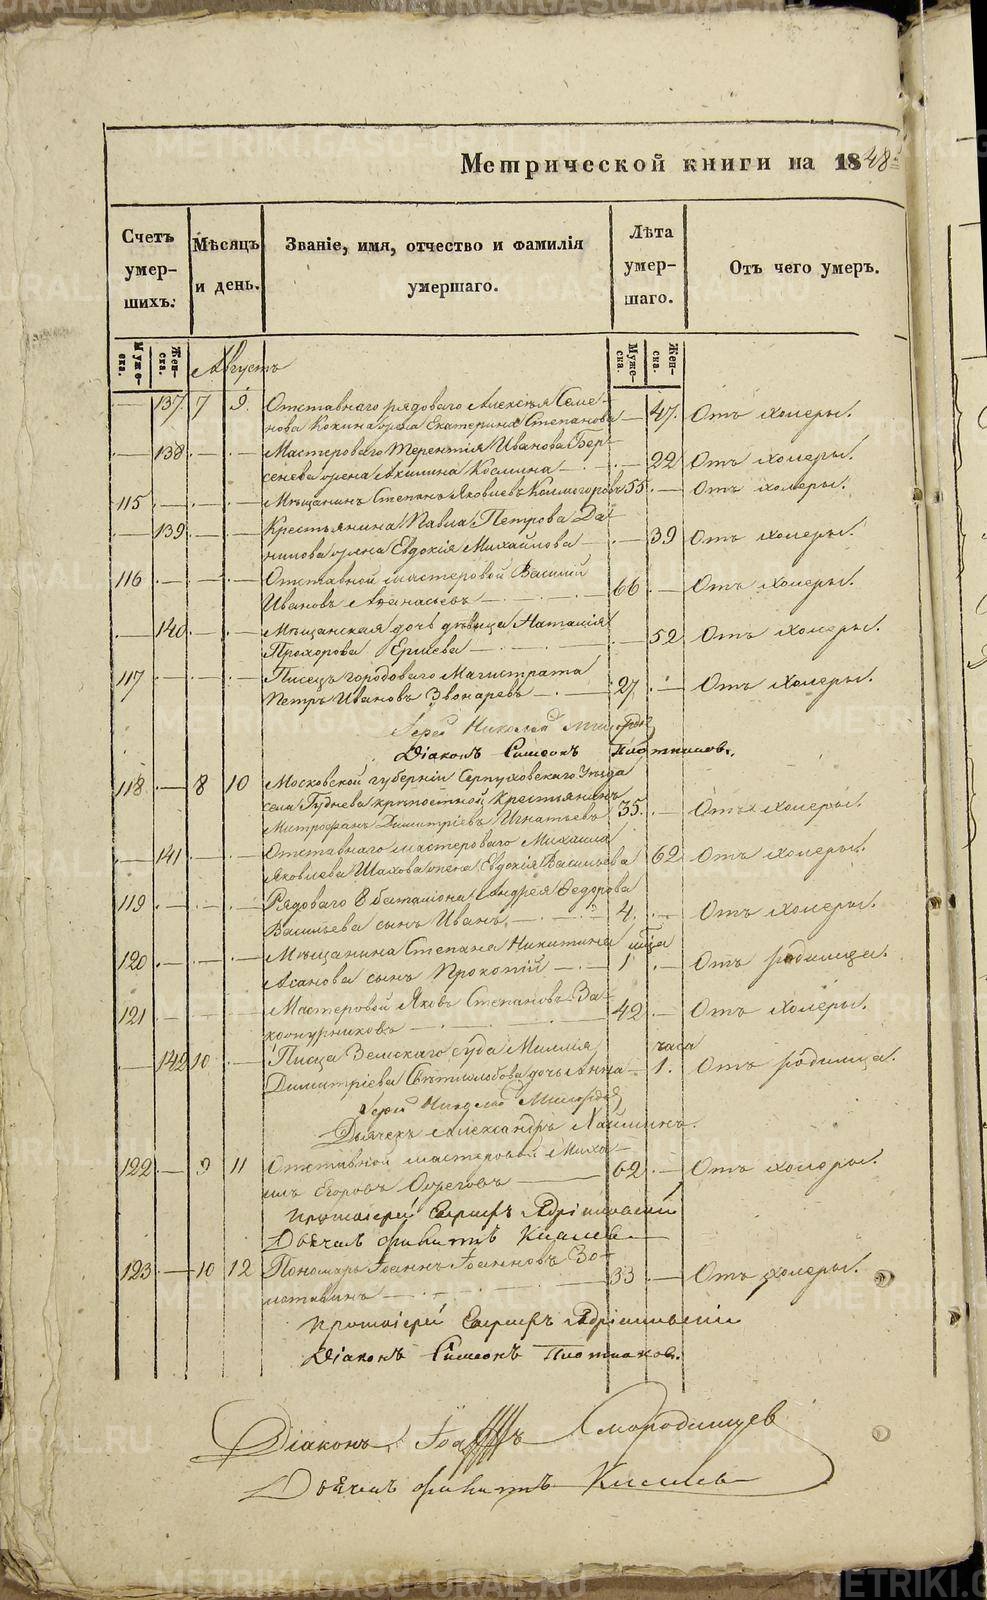 Метрической книги на 1848
Счетъ умер- шихъ.
Мѣсяцъ и день.
Званіе, имя, отчество и фамилія умершаго.
Лѣта умер- шаго.
Отъ чего умеръ.
Муже- ска. Жен- ска. Августъ Муже- ска. Жен- ска.
137 7 9. Отставнаго рядоваго Алексѣя Семе-
нова Кокина жена Екатерина Степанова — 47. Отъ холеры.
138 Мастероваго Терентія Иванова Бер-
сенева жена Акилина Космина — 22 Отъ холеры.
115 Мѣщанинъ Степанъ Яковлевъ Колмогоровъ 55 Отъ холеры.
139 Крестьянина Павла Петрова Да-
нилова жена Евдокія Михайлова — 39 Отъ холеры.
116 Отставной мастеровой Василій
Ивановъ Аѳанасьевъ — 66 Отъ холеры.
140 Мѣщанская дочь дѣвица Наталія
Прохорова Ершева — 52 Отъ холеры.
117 Писецъ городоваго Магистрата
Петръ Ивановъ Звонаревъ — 27 Отъ холеры.
Іерей Николай
Діаконъ Симеонъ Плотниковъ.
118 8 10 Московской губерніи Серпуховскаго Уѣзда
села крѣпостной Крестьянинъ
Митрофанъ Димитріевъ Игнатьевъ 35. Отъ холеры.
141 Отставнаго мастероваго Михаила
Яковлева Шахова жена Евдокія Васильева 62 Отъ холеры.
119 Рядоваго 8 баталіона Андрея Ѳедорова
Васильева сынъ Иванъ — 4. Отъ холеры.
120 Мѣщанина Степана Никитина
Асанова сынъ Прокопій — 1 Отъ родимца.
121 Мастеровой Яковъ Степановъ За-
— 42 Отъ холеры.
142 10 Писца Земскаго суда часа
Димитріева Свѣтлолобова дочь Анна — 1. Отъ родимца.
Іерей Николай
Дьячекъ Александръ
122 9 11 Отставной мастеровой Миха-
илъ Егоровъ — 62 Отъ холеры.
Протоіерей Адріановскій
Дьячекъ Киселевъ
123 10 12 Пономарь Іоаннъ Іоанновъ Зо-
лотавинъ — 33 Отъ холеры.
Протоіерей Адріановскій
Діаконъ Симеонъ Плотниковъ.
Діаконъ Смородинцев
Дьячекъ Киселевъ